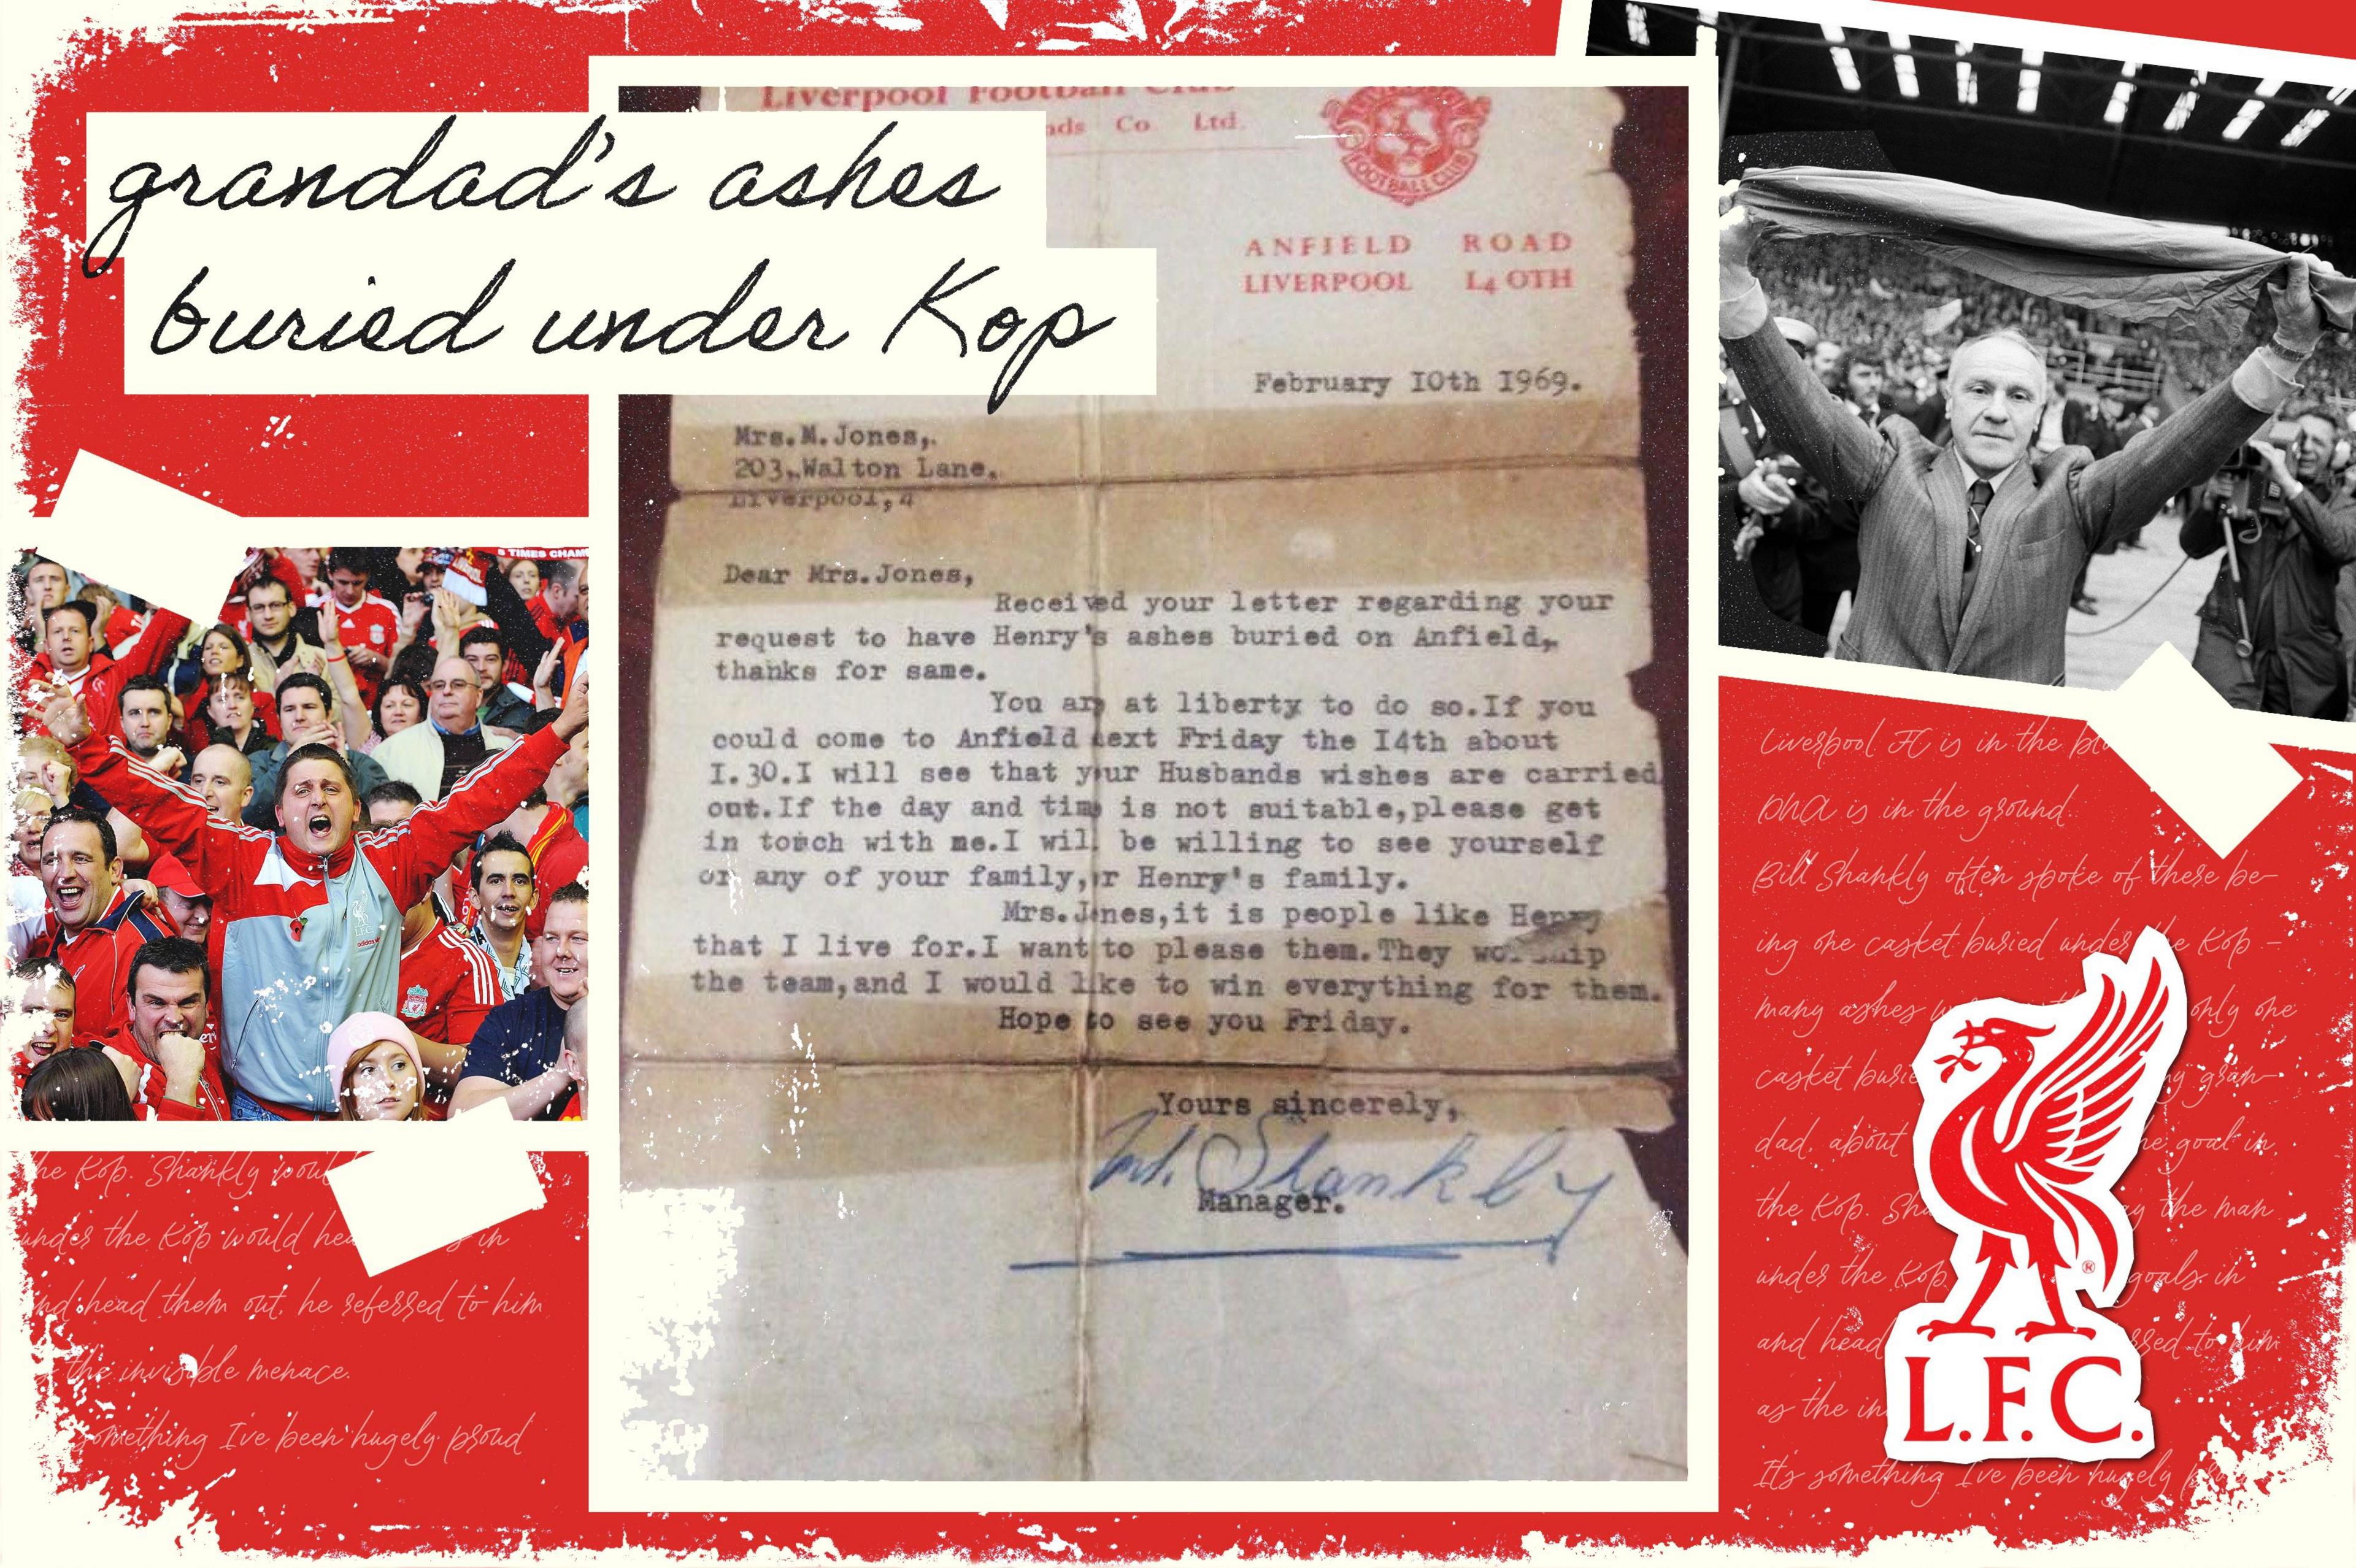 grandad's ashes
buried under Kop
Liverpool Football Club
Co. Ltd.
FOOTBALL CLUB
ANFIELD ROAD
LIVERPOOL L4 OTH
February I0th I969.
Mrs.M.Jones,.
203,Walton Lane.
Liverpool,4
Dear Mrs.Jones,
Received your letter regarding your
request to have Henry's ashes buried on Anfield,
thanks for same.
You are at liberty to do so.If you
could come to Anfield next Friday the I4th about
I.30.I will see that your Husbands wishes are carried
out.If the day and time is not suitable,please get
in touch with me.I will be willing to see yourself
or any of your family,or Henry's family.
Mrs.Jones,it is people like Henry
that I live for.I want to please them.They worship
the team,and I would like to win everything for them.
Hope to see you Friday.
Yours sincerely,
Shankly
Manager.
S TIMES CHAM
adidas
he Kop. Shankly woul
under the Kop would hea in
nd head them out, he referred to him
the invisible menace.
something I've been hugely proud
Liverpool FC is in the blo
DNA is in the ground.
Bill Shankly often spoke of there be-
ing one casket buried under the Kop -
many ashes only one
casket burie y gran-
dad, about he goal in,
the Kop. Sha ay the man
under the Kop goals in
and head rred to him
as the in
It's something I've been hugely
L.F.C.